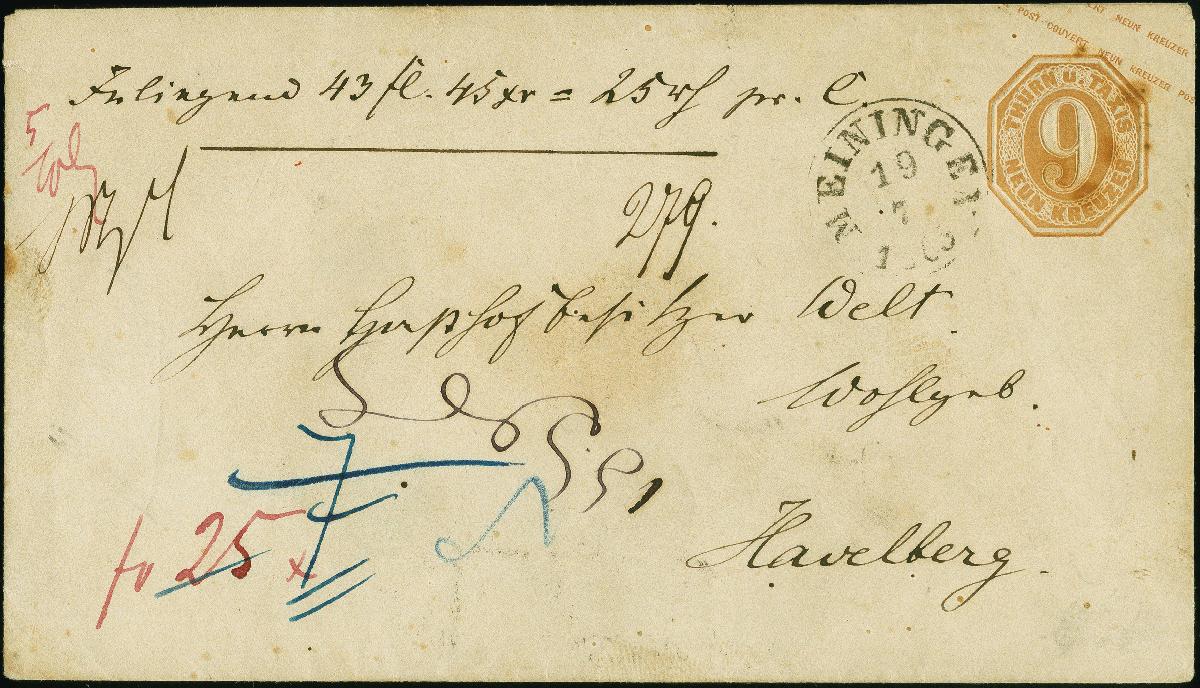 POST COUVERT NEUN KREUZER
POST COUVERT NEUN KREUZER POST
THURN U. TAXIS
9
NEUN KREUZER
Inliegend 43 fl. 45 xr = 25 rh pr. C.
MEININGEN
19
7
5
279.
Herrn Gasthofbesitzer Welt
Wohlgeb.
7
fo 25 x
Havelberg.